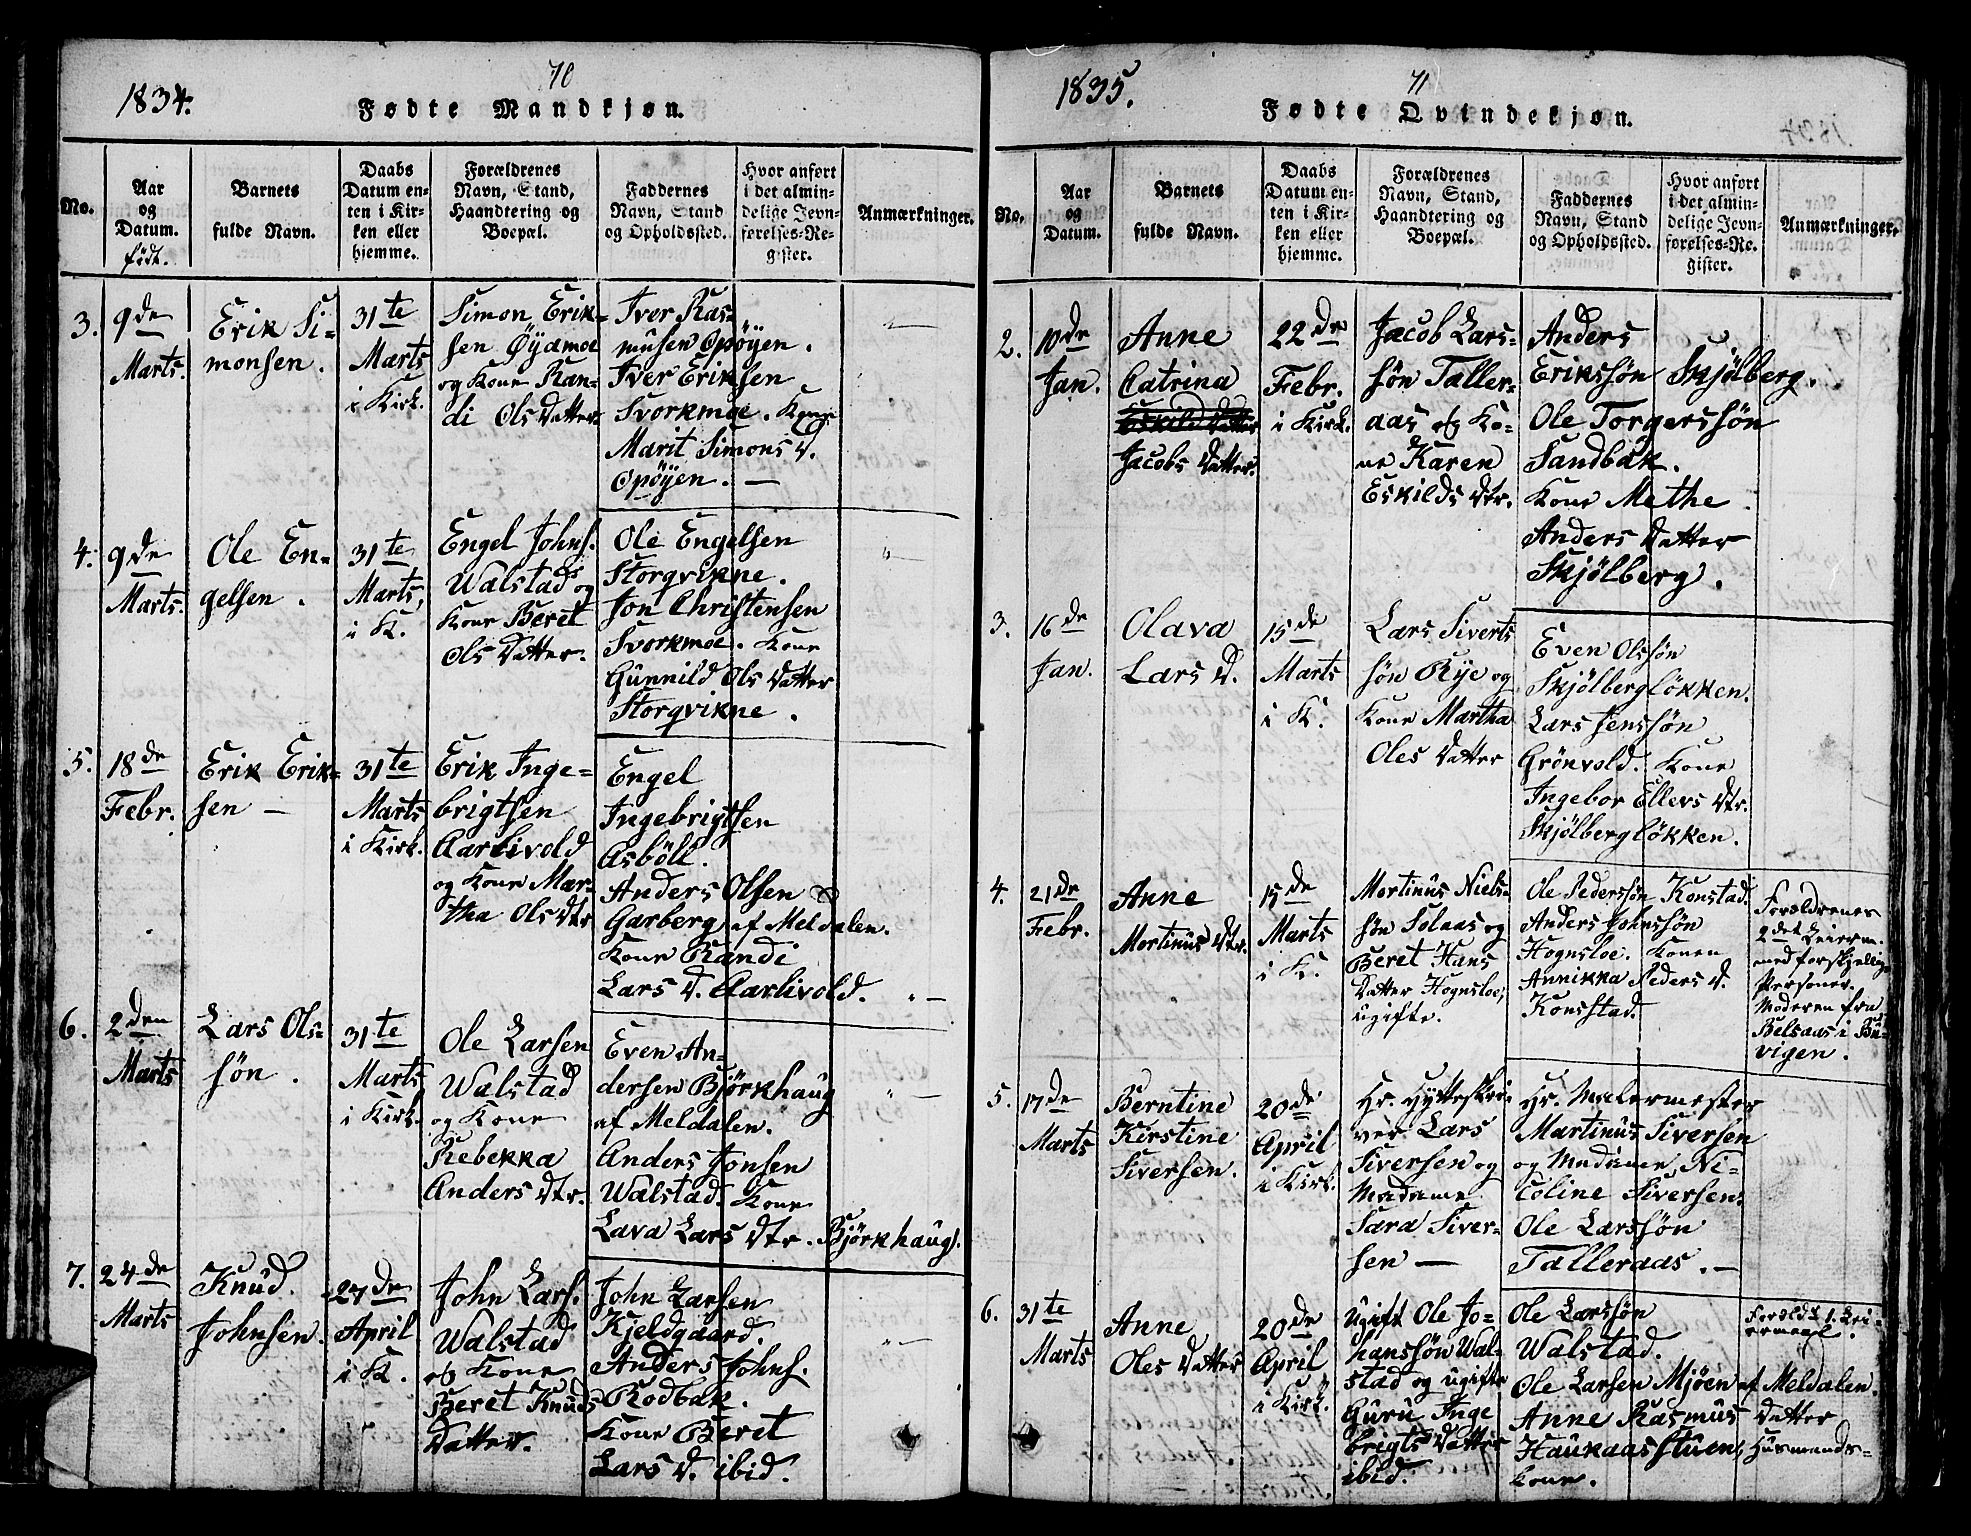 70
1834.
Fødte Mandkjøn.
No.
Aar
og
Datum.
født.
Barnets
fulde Navn.
Daabs
Datum en-
ten i Kir-
ken eller
hjemme.
Forældrenes
Navn, Stand,
Haandtering og
Boepæl.
Faddernes
Navn, Stand
og Opholdssted.
Hvor anført
i det almin-
delige Jevn-
førelses-Re-
gister.
Anmærkninger.
3.
9de
Marts.
Erik Si-
monsen.
31te
Marts
i Kirk.
Simon Erik-
sen Øydmoe
og Kone Ran-
di Ols Datter
Iver Ras-
musen Opøyen.
Iver Eriksen
Svorkmoe. Kone
Marit Simons D.
Opøyen. —
4.
9de
Marts.
Ole En-
gelsen.
31te
Marts,
i K.
Engel Johns.
Walstad og
Kone Beret
Ols Datter.
Ole Engelsen
Storqvikne.
Jon Christensen
Svorkmoe. Kone
Gunnild Ols Datter
Storqvikne.
5.
18de
Febr.
Erik Erik-
sen —
31te
Marts
i Kirk.
Erik Inge-
brigtsen
Aarlivold
og Kone Mar-
tha Ols Dtr
Engel
Ingebrigtsen
Asböll.
Anders Olsen
Garberg af Meldalen.
Kone Randi
Lars D. Aarlivold.
6.
2den
Marts
Lars Ols-
søn.
31te
Marts
i Kirk.
Ole Larsen
Walstad
og Kone
Rebekka
Anders Dtr.
Even An-
dersen Björkhaug
af Meldalen.
Anders Jonsen
Walstad. Kone
Lava Lars Dtr. Björkhaug.
7.
24de
Marts
Knud
Johnsen.
27de
April
i K.
John Lars.
Walstad
og Kone
Beret Knuds
Datter.
John Larsen
Kjeldgaard.
Anders Johns.
Rodbak.
Kone Beret
Lars D. ibid.
71
1835.
Fødte Qvindekjøn.
No.
Aar
og
Datum.
Barnets
fulde Navn.
Daabs
Datum en-
ten i Kir-
ken eller
hjemme.
Forældrenes
Navn, Stand,
Haandtering og
Boepæl.
Faddernes
Navn, Stand
og Opholdssted.
Hvor anført
i det almin-
delige Jevn-
førelses-Re-
gister.
Anmærkninger.
2.
10de
Jan.
Anne
Catrina
Eskilds Datter
Jacobs Datter.
22de
Febr.
i Kirk.
Jacob Lars-
søn Taller-
aas og Ko-
ne Karen
Eskilds Dtr.
Anders
Erikssøn Skjölberg.
Ole Torgerssøn
Sandbak.
Kone Methe
Anders Datter
Skjölberg.
3.
16de
Jan.
Olava
Lars D.
15de
Marts
i K.
Lars Siverts
søn Rye og
Kone Martha
Oles Datter
Even Olssøn
Skjölbergløkken.
Lars Jenssøn
Grönvold. Kone
Ingebor Ellevs Dtr.
Skjölbergløkken.
4.
21de
Febr.
Anne
Mortinus Dtr.
15de
Marts
i K.
Mortinus Niels-
søn Solaas og
Beret Hans
Datter Hognsloe,
ugifte.
Ole Pederssøn Konstad.
Anders Johnssøn
Hognsloe. Konen
Annikka Peders D.
Konstad.
Forældrenes
2det Leierm.
med forskjellig-
Personer.
Moderen fra
Belsaas i Bu-
vigen.
5.
17de
Marts
Berntine
Kirstine
Siversen.
20de
April
i Kirk.
Hr. Hytteskri-
ver Lars
Siversen og
Madame
Sara Siver-
sen —
Hr. Malermester
Martinus Siversen
og Madame Ni-
coline Siversen.
Ole Larssøn
Talleraas. —
6.
31te
Marts
Anne
Oles Datter
20de
April
i Kirk.
Ugift Ole Jo-
hanssøn Wal-
stad og ugifte
Guru Inge
brigts Datter
ibid.
Ole Larssøn
Walstad.
Ole Larsen Mjøen af Meldalen.
Anne Rasmus Datter
Haukaasstuen, Husmands-
kone.
Foræld. 1. Lei-
ermaal.